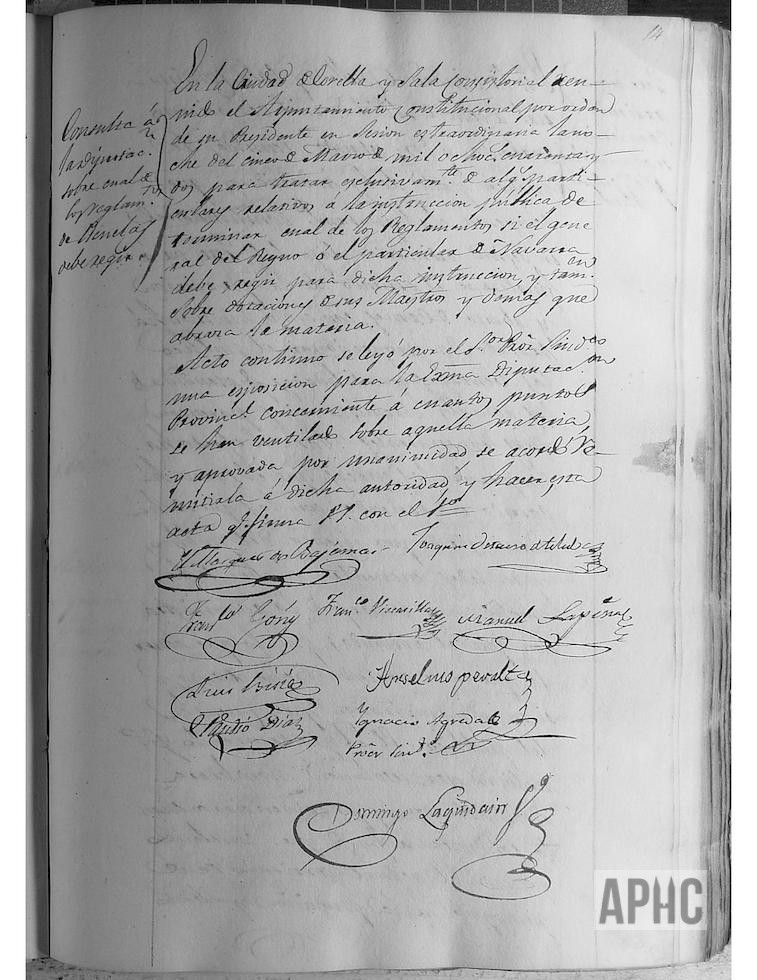 14
Consulta á
la Diputac.n
sobre cual de
los reglam.tos
de Escuelas
debe regir.
En la Ciudad de Corella y Sala Consistorial reu-
nido el Ayuntamiento Constitucional por orden
de su Presidente en Sesion extraordinaria la no-
che del cinco de Marzo de mil ochoc. cuarenta y
dos para tratar esclusivam.te de alg.s parti-
culares relativos a la instruccion publica de
terminar cual de los Reglamentos si el gene
ral del Reyno ó el particular de Navarra
debe regir para dicha instruccion, y tam.n
sobre dotaciones de sus Maestros y demas que
abraza la materia.
Acto continuo se leyó por el S.or Pror Sindico
una esposicion para la Exma Diputac.on
Provincl. concerniente á cuantos puntos
se han ventilado sobre aquella materia,
y aprovada por unanimidad se acordó re-
mitirla á dicha autoridad y hacer esta
acta q.e firma SS. con el Srio
El Marques de Bajamar
Joaquin de
Fran.co Goñy
Fran.co Viscasillas
Manuel Lapeña
Luis
Anselmo peralta
Diaz
Ignacio Agreda
Pror Sind.o
Domingo Laquidain
APHC